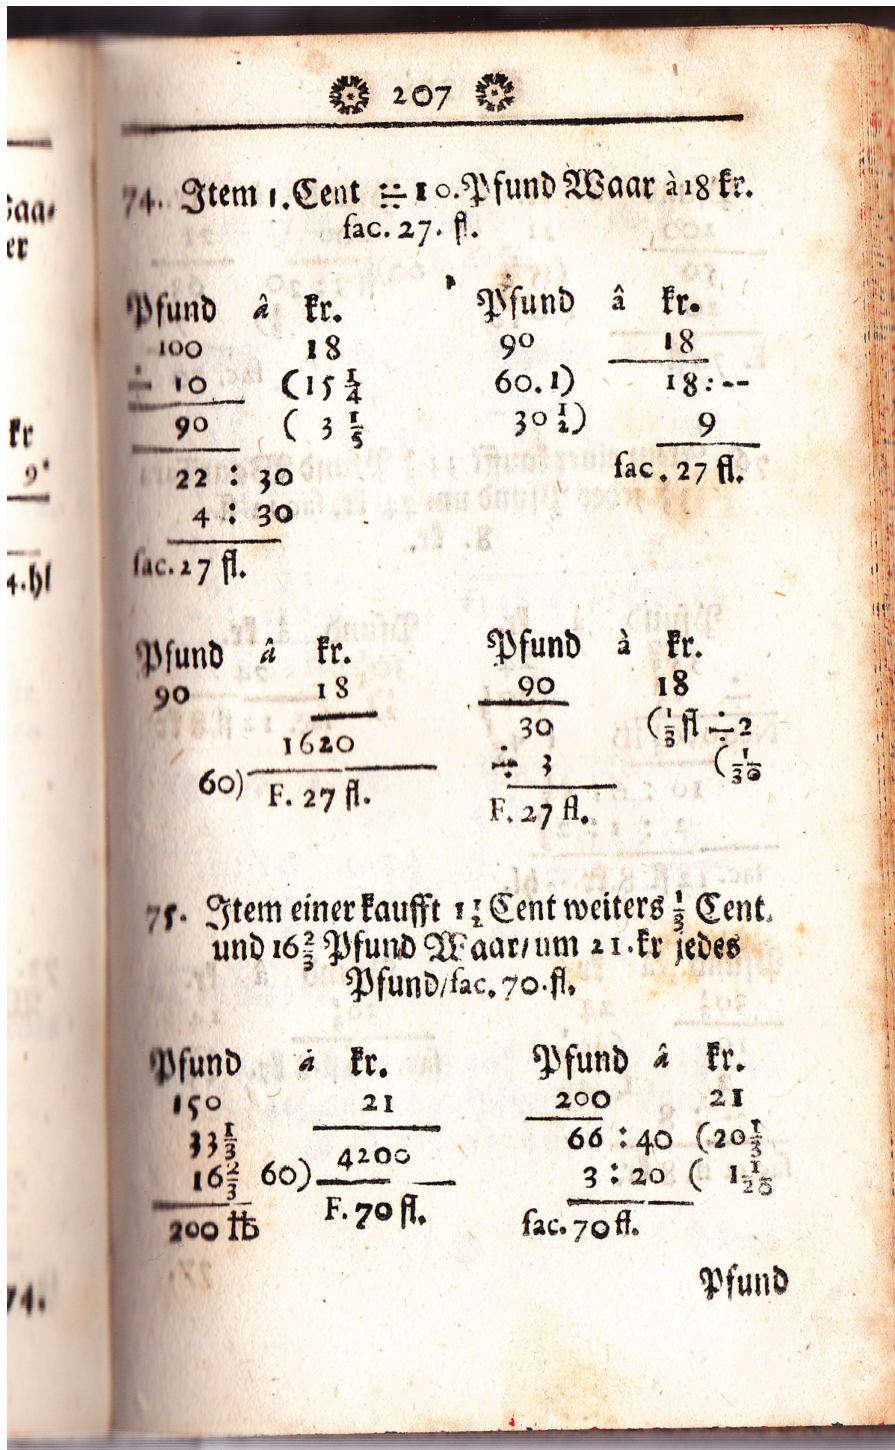 207
74. Item 1. Cent ÷ 10. Pfund Waar à 18 kr.
fac. 27. fl.
Pfund â kr.
100 18
÷ 10 (15 1/4
90 ( 3 1/5
22 : 30
4 : 30
fac. 27 fl.
Pfund â kr.
90 18
60. 1) 18 : --
30 1/2) 9
fac. 27 fl.
Pfund â kr.
90 18
1620
60) F. 27 fl.
Pfund à kr.
90 18
30 (1/3 fl ÷ 2
÷ 3 (1/30
F. 27 fl.
75. Item einer kaufft 1 1/2 Cent weiters 1/3 Cent.
und 16 2/3 Pfund Waar / um 21. kr jedes
Pfund / fac. 70. fl.
Pfund â kr.
150 21
33 1/3
4200
16 2/3 60)
200 ℔ F. 70 fl.
Pfund â kr.
200 21
66 : 40 (20 1/3
3 : 20 ( 1 1/20
fac. 70 fl.
Pfund
er
kr
9
4. hl
74.